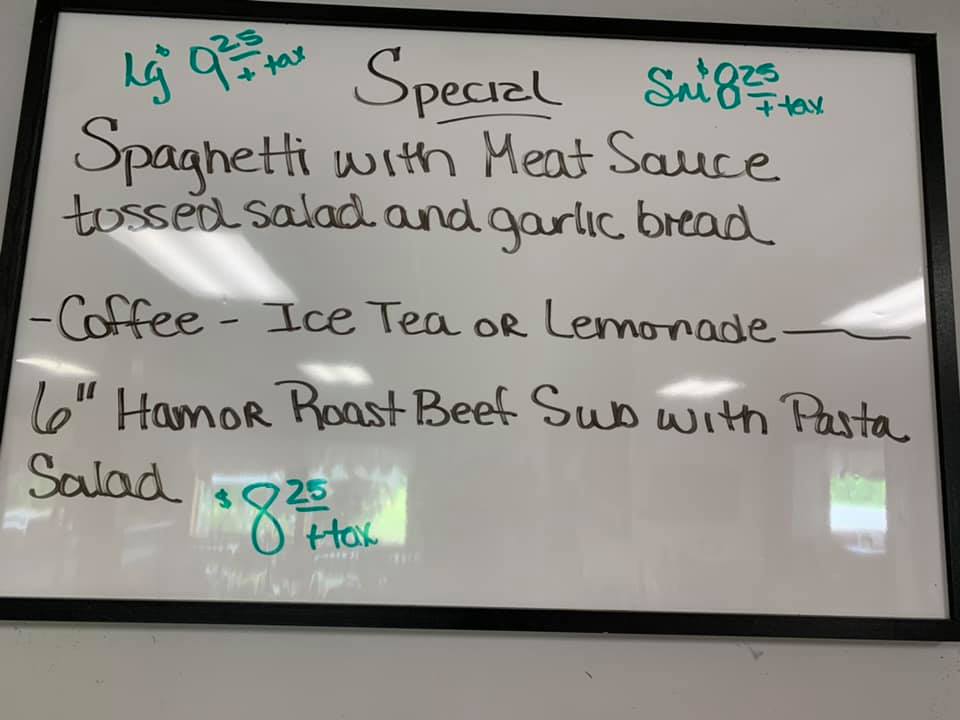 Lg $9 25 + tax Special Sm $8 25 + tax
Spaghetti with Meat Sauce
tossed salad and garlic bread
- Coffee - Ice Tea OR Lemonade
6" Ham or Roast Beef Sub with Pasta
Salad $8 25 + tax